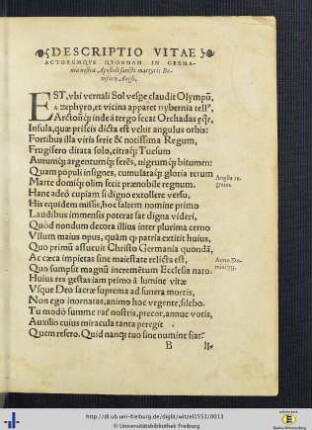 DESCRIPTIO VITAE
ACTORUMQVE QVONDAM IN GERMA-
nia nostra Apostoli sancti martyris Bo-
nifacij Angli.
EST, vbi vernali Sol vespe claudit Olympũ,
A zephyro, et vicina apparet hybernia tell⁹
Arctoũq; inde à tergo secat Orchadas ęq̃r,
Insula, quæ priscis dicta est velut angulus orbis:
Fortibus illa viris serie & notissima Regum,
Frugifero ditata solo, citraq;
Aurumq; argentumq; ferẽs, nigrumq; bitumen:
Quam populi insignes, cumulataq; gloria rerum
Marte domiq; olim fecit prænobile regnum.
Hanc adeò cupiam si digno extollere versu,
His equidem missis, hoc saltem nomine primo
Laudibus immensis poterat sat digna videri,
Quòd nondum decora illius inter plurima cerno
Vllum maius opus, quàm q; patria extitit huius,
Quo primũ assueuit Christo Germania quondã,
Ac cæca impietas sine maiestate relicta est,
Quo sumpsit magnũ incremẽtum Ecclesia nato.
Huius res gestas iam primo à lumine vitæ
Vsque Deo sacræ suprema ad funera mortis,
Non ego inornatas, animo hoc vrgente, silebo.
Tu modò summe
precor, annue votis,
Auxilio cuius miracula tanta peregit
Quem resero. Quid nanq; tuo sine numine fiat?
B
Anglia re-
gnum.
http://dl.ub.uni-freiburg.de/diglit/witzel1553/0013
© Universitätsbibliothek Freiburg